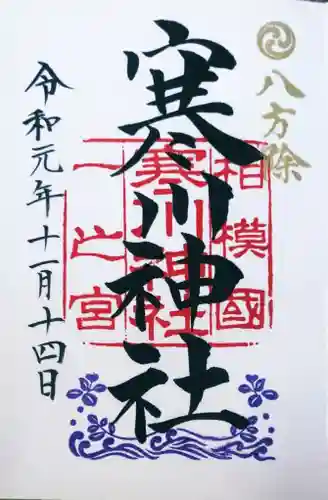 八方除
寒川神社
相模國
寒川神社
一之宮
令和元年十一月十四日